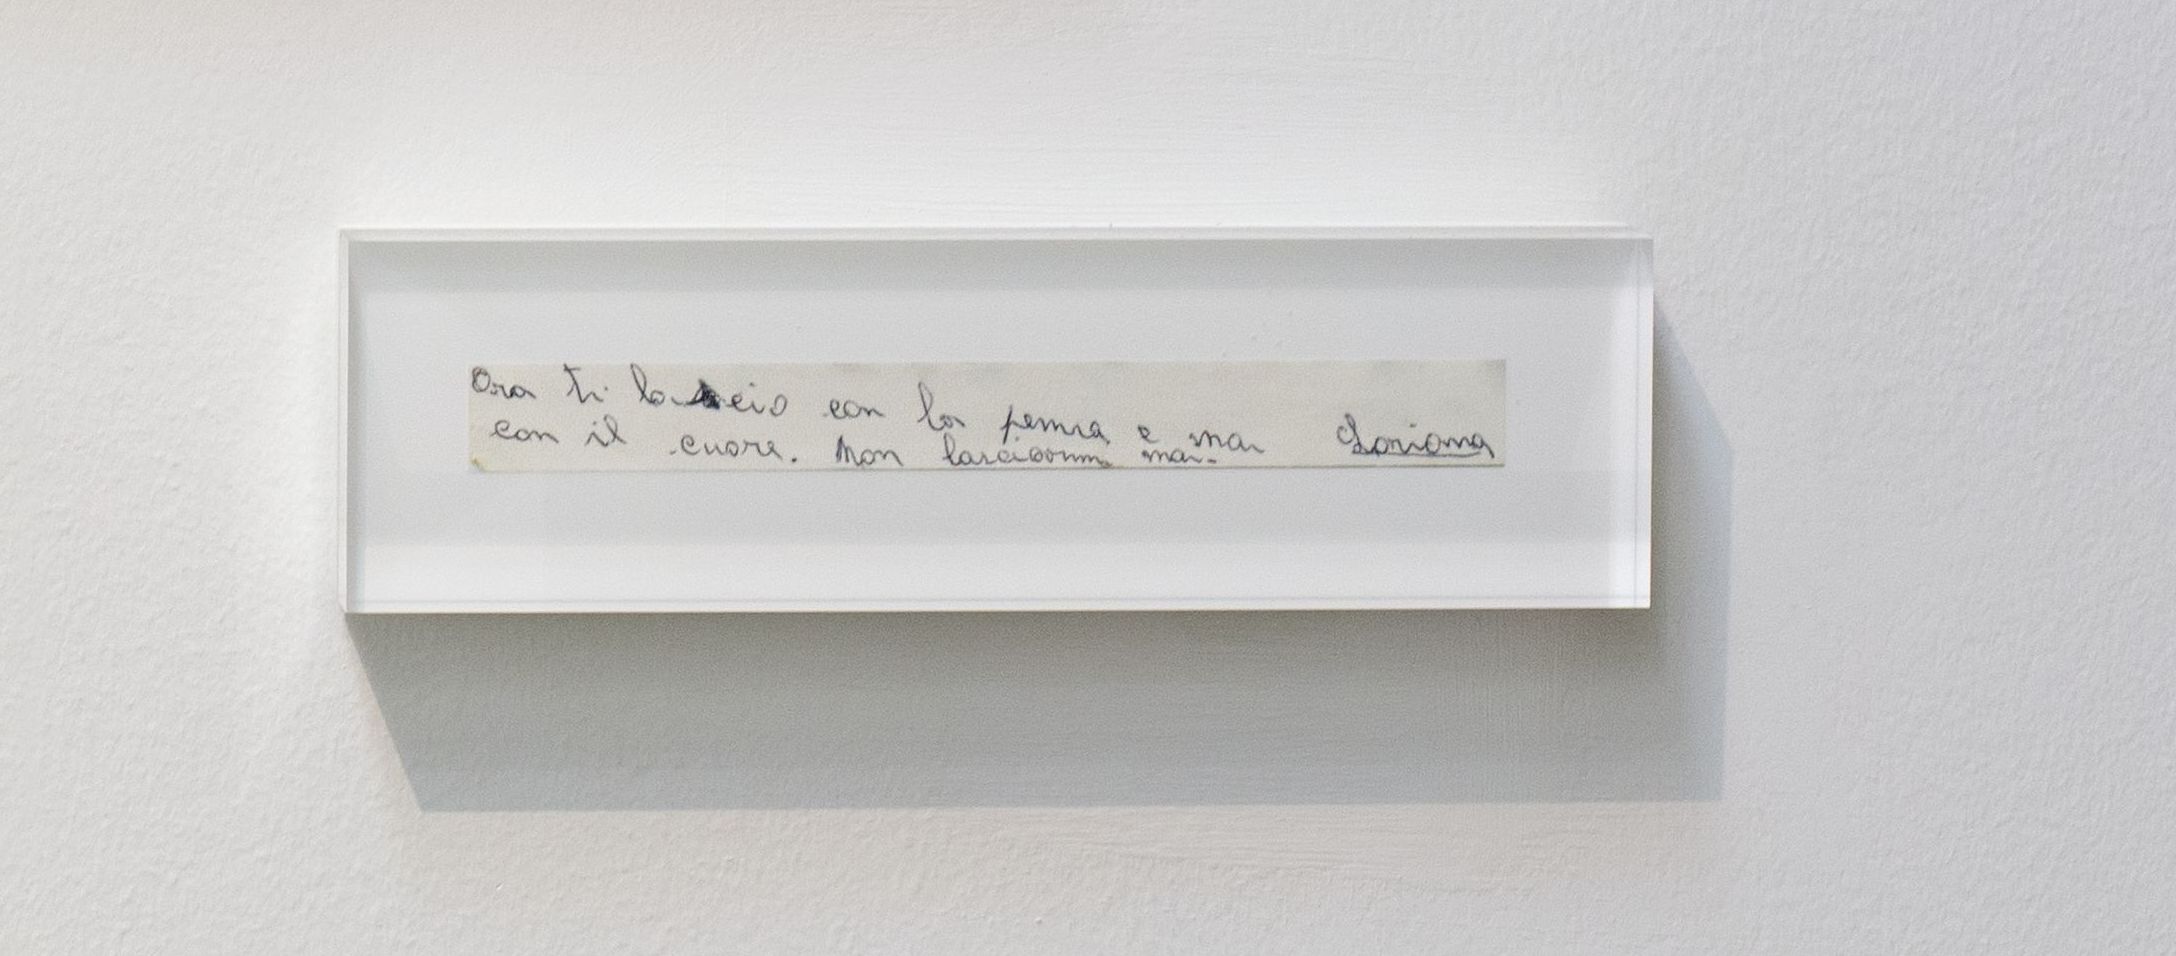 Ora ti lascio con la penna e mai Loriana
con il cuore. Non lasciarmi mai.